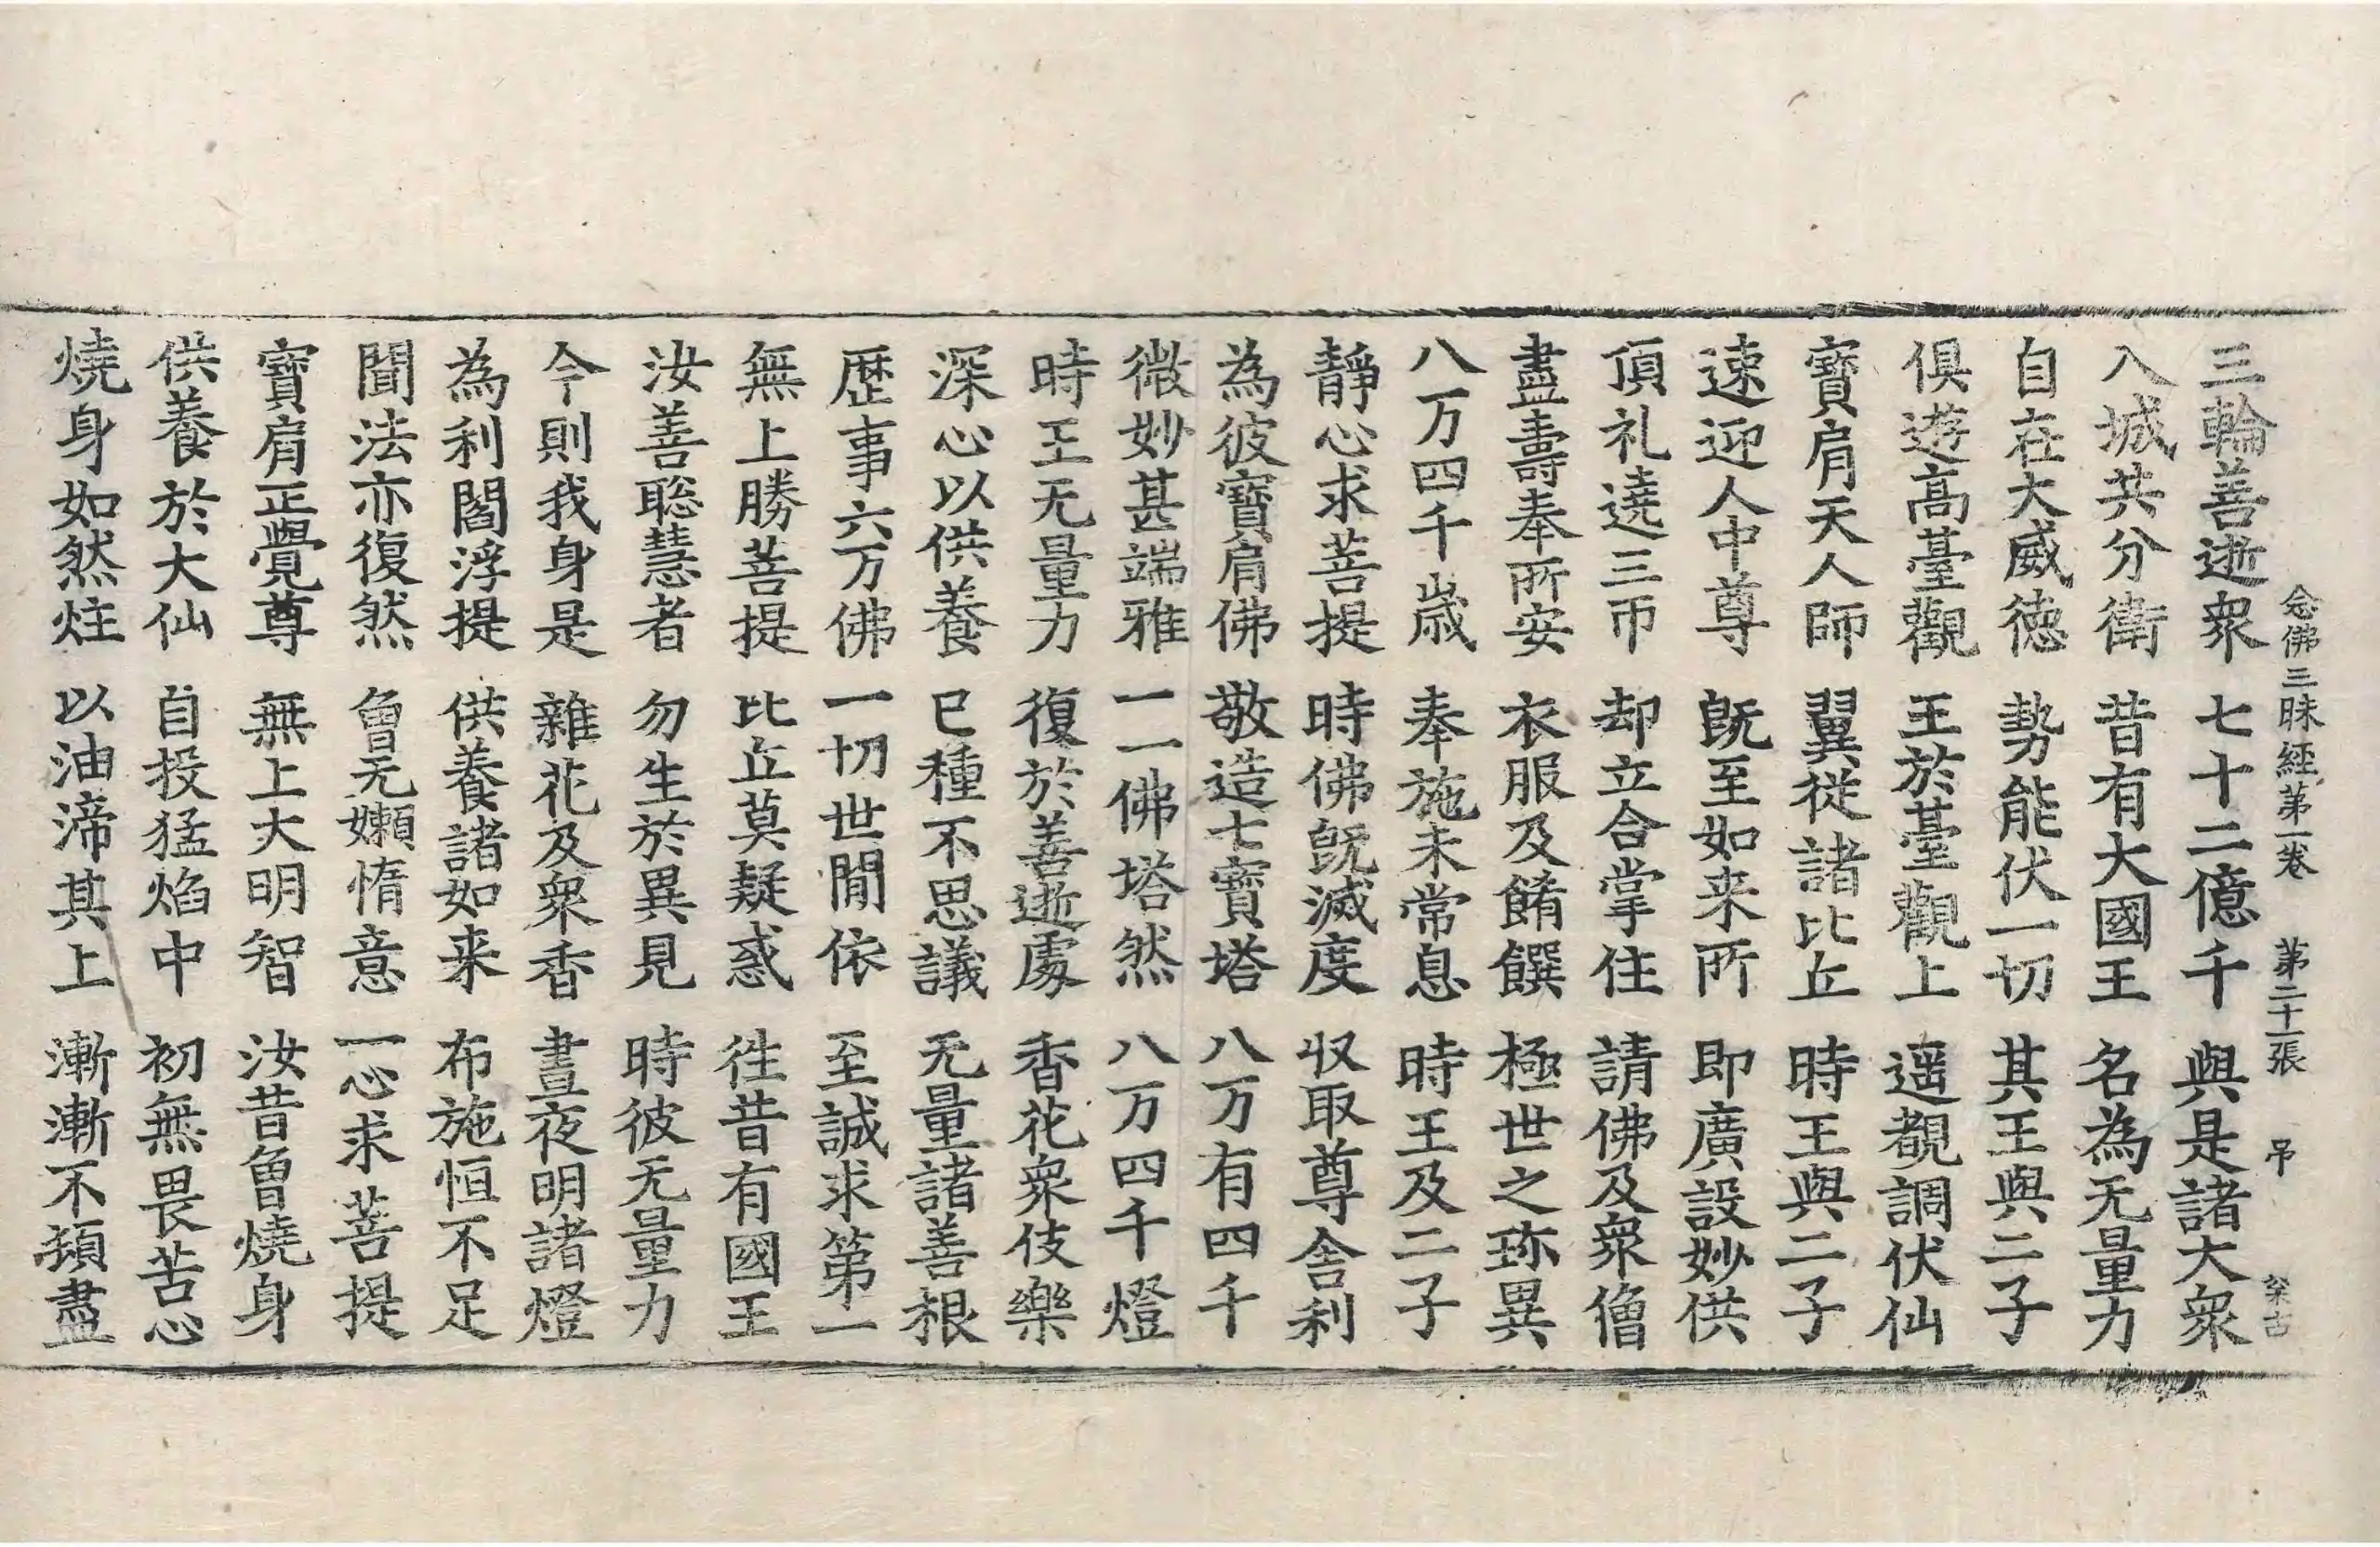 念佛三昧經第一卷 第二十一張 弔
三輪善逝衆 七十二億千 與是諸大衆
入城共分衛 昔有大國王 名為无量力
自在大威徳 勢能伏一切 其王與二子
俱遊髙臺觀 王於臺觀上 遥覩調伏仙
寶肩天人師 翼從諸比丘 時王與二子
速迎人中尊 旣至如来所 即廣設妙供
頂礼遶三帀 却立合掌住 請佛及衆僧
盡壽奉所安 衣服及餚饌 極世之珎異
八万四千歲 奉施未常息 時王及二子
靜心求菩提 時佛旣滅度 収取尊舎利
為彼寶肩佛 敬造七寶塔 八万有四千
微妙甚端雅 一一佛塔然 八万四千燈
時王无量力 復於善逝處 香花衆伎樂
深心以供養 已種不思議 无量諸善根
歷事六万佛 一切世閒依 至誠求第一
無上勝菩提 比丘莫疑惑 徃昔有國王
汝善聦慧者 勿生於異見 時彼无量力
今則我身是 雜花及衆香 晝夜明諸燈
為利閻浮提 供養諸如来 布施恒不足
聞法亦復然 曾无嬾惰意 一心求菩提
寶肩正覺尊 無上大明智 汝昔曾燒身
供養於大仙 自投猛焰中 初無畏苦心
燒身如然炷 以油渧其上 漸漸不頓盡